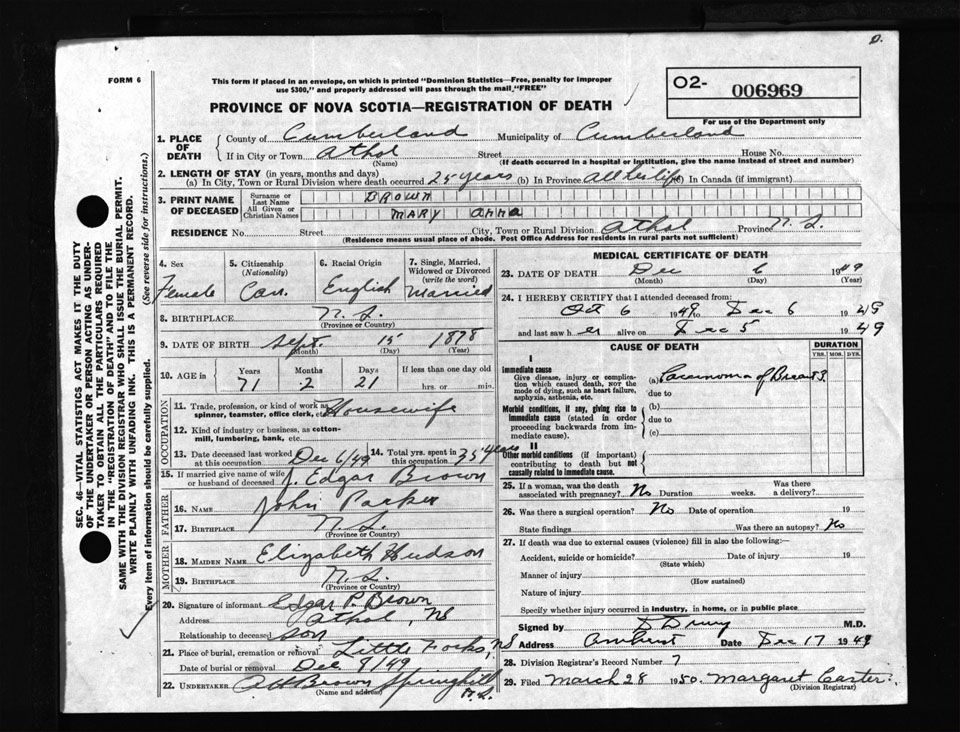 D.
FORM 6
This form if placed in an envelope, on which is printed "Dominion Statistics—Free, penalty for improper
use $300," and properly addressed will pass through the mail, "FREE"
PROVINCE OF NOVA SCOTIA—REGISTRATION OF DEATH
O2- 006969
For use of the Department only
SEC. 46—VITAL STATISTICS ACT MAKES IT THE DUTY
OF THE UNDERTAKER OR PERSON ACTING AS UNDER-
TAKER TO OBTAIN ALL THE PARTICULARS REQUIRED
IN THE "REGISTRATION OF DEATH" AND TO FILE THE
SAME WITH THE DIVISION REGISTRAR WHO SHALL ISSUE THE BURIAL PERMIT.
WRITE PLAINLY WITH UNFADING INK. THIS IS A PERMANENT RECORD.
Every item of information should be carefully supplied. (See reverse side for instructions.)
1. PLACE OF DEATH
County of Cumberland Municipality of Cumberland
If in City or Town Athol Street House No.
(Name) (If death occurred in a hospital or institution, give the name instead of street and number)
2. LENGTH OF STAY (in years, months and days)
(a) In City, Town or Rural Division where death occurred 25 years (b) In Province All her life (c) In Canada (if immigrant)
3. PRINT NAME OF DECEASED
Surname or Last Name BROWN
All Given or Christian Names MARY ANNA
RESIDENCE No. Street City, Town or Rural Division Athol Province N.S.
(Residence means usual place of abode. Post Office Address for residents in rural parts not sufficient)
4. Sex Female
5. Citizenship (Nationality) Can.
6. Racial Origin English
7. Single, Married, Widowed or Divorced (write the word) Married
8. BIRTHPLACE N.S.
(Province or Country)
9. DATE OF BIRTH Sept. 15 1878
(Month) (Day) (Year)
10. AGE in Years 71 Months 2 Days 21 If less than one day old hrs. or min.
OCCUPATION
11. Trade, profession, or kind of work as spinner, teamster, office clerk, etc. Housewife
12. Kind of industry or business, as cotton-mill, lumbering, bank, etc.
13. Date deceased last worked at this occupation Dec 6/49
14. Total yrs. spent in this occupation 35 years
15. If married give name of wife or husband of deceased J. Edgar Brown
FATHER
16. NAME John Parker
17. BIRTHPLACE N.S.
(Province or Country)
MOTHER
18. MAIDEN NAME Elizabeth Hudson
19. BIRTHPLACE N.S.
(Province or Country)
20. Signature of informant Edgar P. Brown
Address Athol, NS
Relationship to deceased son
21. Place of burial, cremation or removal Little Forks, NS
Date of burial or removal Dec 9/49
22. UNDERTAKER Brown Springhill N.S.
(Name and address)
MEDICAL CERTIFICATE OF DEATH
23. DATE OF DEATH Dec 6 1949
(Month) (Day) (Year)
24. I HEREBY CERTIFY that I attended deceased from:
Oct 6 1949 to Dec 6 1949
and last saw her alive on Dec 5 1949
CAUSE OF DEATH DURATION
YRS. MOS. DYS.
I
Immediate cause
Give disease, injury or complication which caused death, NOT the mode of dying, such as heart failure, asphyxia, asthenia, etc.
(a) Carcinoma of Breast
due to
Morbid conditions, if any, giving rise to immediate cause (stated in order proceeding backwards from immediate cause).
(b)
due to
(c)
II
Other morbid conditions (if important) contributing to death but not causally related to immediate cause.
25. If a woman, was the death associated with pregnancy? No Duration weeks. Was there a delivery?
26. Was there a surgical operation? No Date of operation 19
State findings Was there an autopsy? No
27. If death was due to external causes (violence) fill in also the following:—
Accident, suicide or homicide? Date of injury 19
(State which)
Manner of injury
(How sustained)
Nature of injury
Specify whether injury occurred in industry, in home, or in public place
Signed by D Drury M.D.
Address Amherst Date Dec 17 1949
28. Division Registrar's Record Number 7
29. Filed March 28 1950. Margaret Carter.
(Division Registrar)